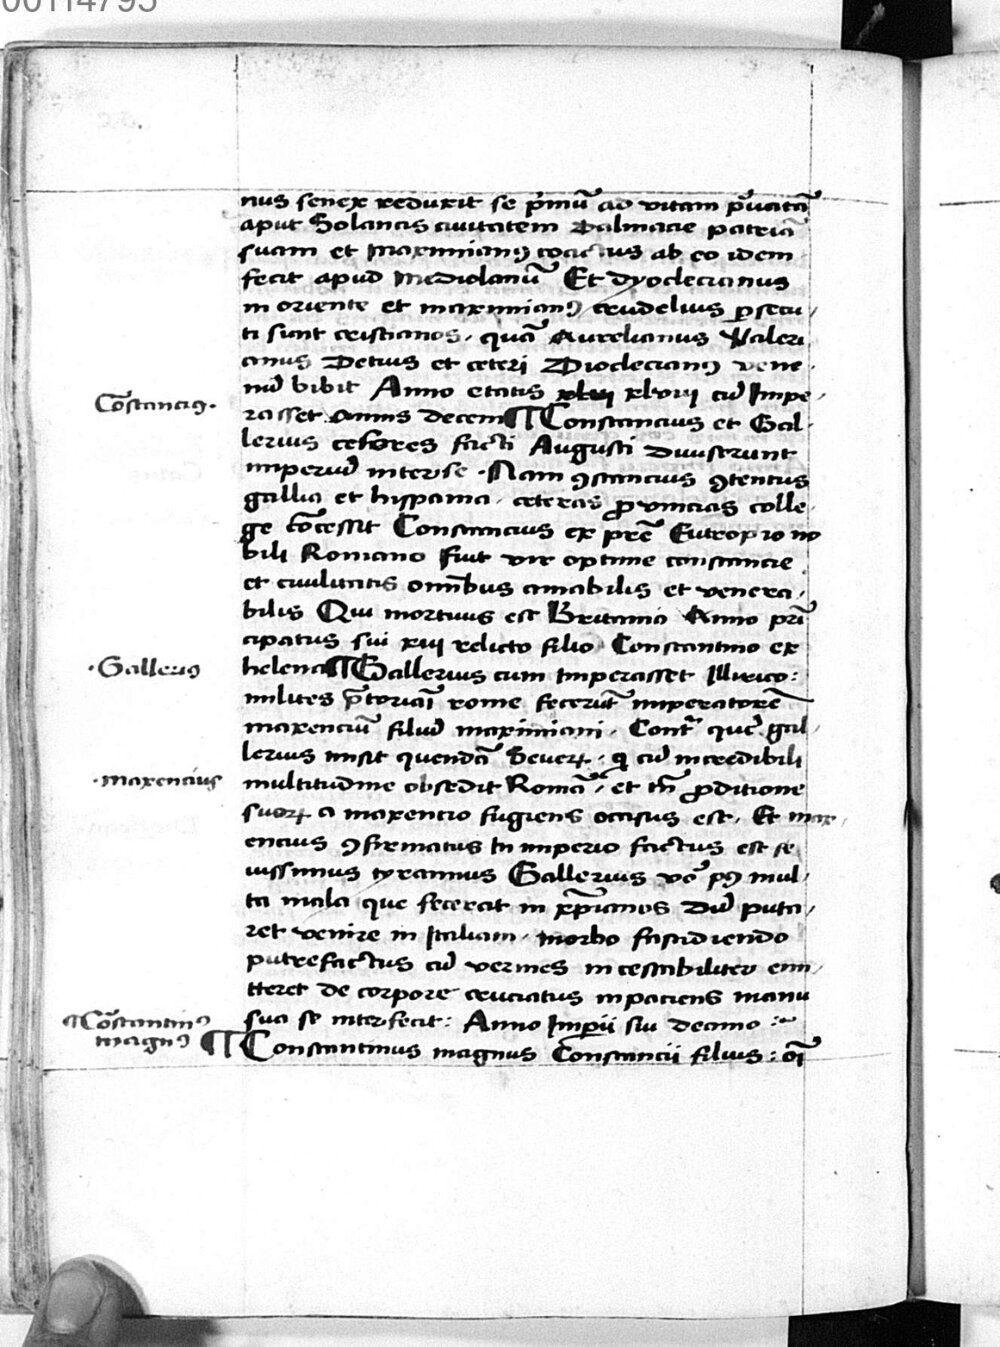 00114795
nus senex reduxit se p̄mū ad vitam p̄uatā
aput Solancis ciuitatem Dalmacie patriā
suam et Maximianꝰ coactus ab eo idem
fecit apud Mediolanū Et dyoclecianus
in oriente et maximianꝰ crudelius ꝑsecu
ti sunt cristianos, quā Aurelianus Valeri
anus Detius et ceteri Dioclecianꝰ vene
nū bibit Anno etatis xlviii cū Impe
Cōstanciꝰ.
rasset annis decem ¶ Constancius et Gal
lerius cesores facti Augusti Diuiserunt
imperiū inter se . Nam ꝯstancius ꝯtentus
gallia et hispania, ceteras ꝓvincias colle
ge cōcessit Constancius ex pr̄e Eutropio no
bili Romano fuit vir optime constancie
et ciuilitatis omībus amabilis et venera
bilis Qui mortuus est Britania Anno pri̅
cipatus sui xiii relicto filio Constantino ex
·Galleriꝰ
helena ¶ Gallerius cum Imperasset Illirico:
milites p̄toriai̅ rome fecerūt imperatorē
maxenciū filiū maximiani, Contᷓ quē gal
lerius misit quendā Seuerꝝ, qͥ cū incredibili
·maxencius
multitudine obsedit Romā, et tn̄ ꝓditione
suorꝝ a maxencio fugiens occisus est, Et max
encius ꝯfirmatus in imperio factus est se
uissimus tyrannus Gallerius vō pꝰ mul
ta mala que fecerat in xp̄ianos Dū puta
ret venire in Italiam, morbo fastidiendo
putrefactus cū vermes incestabiliter emi
tteret de corpore cruciatus inpaciens manu
sua se interfecit: Anno Imp̄ii sui decimo :~
¶Cōstantinꝰ
magnꝰ
¶ Constantinus magnus Constancii filius: oī